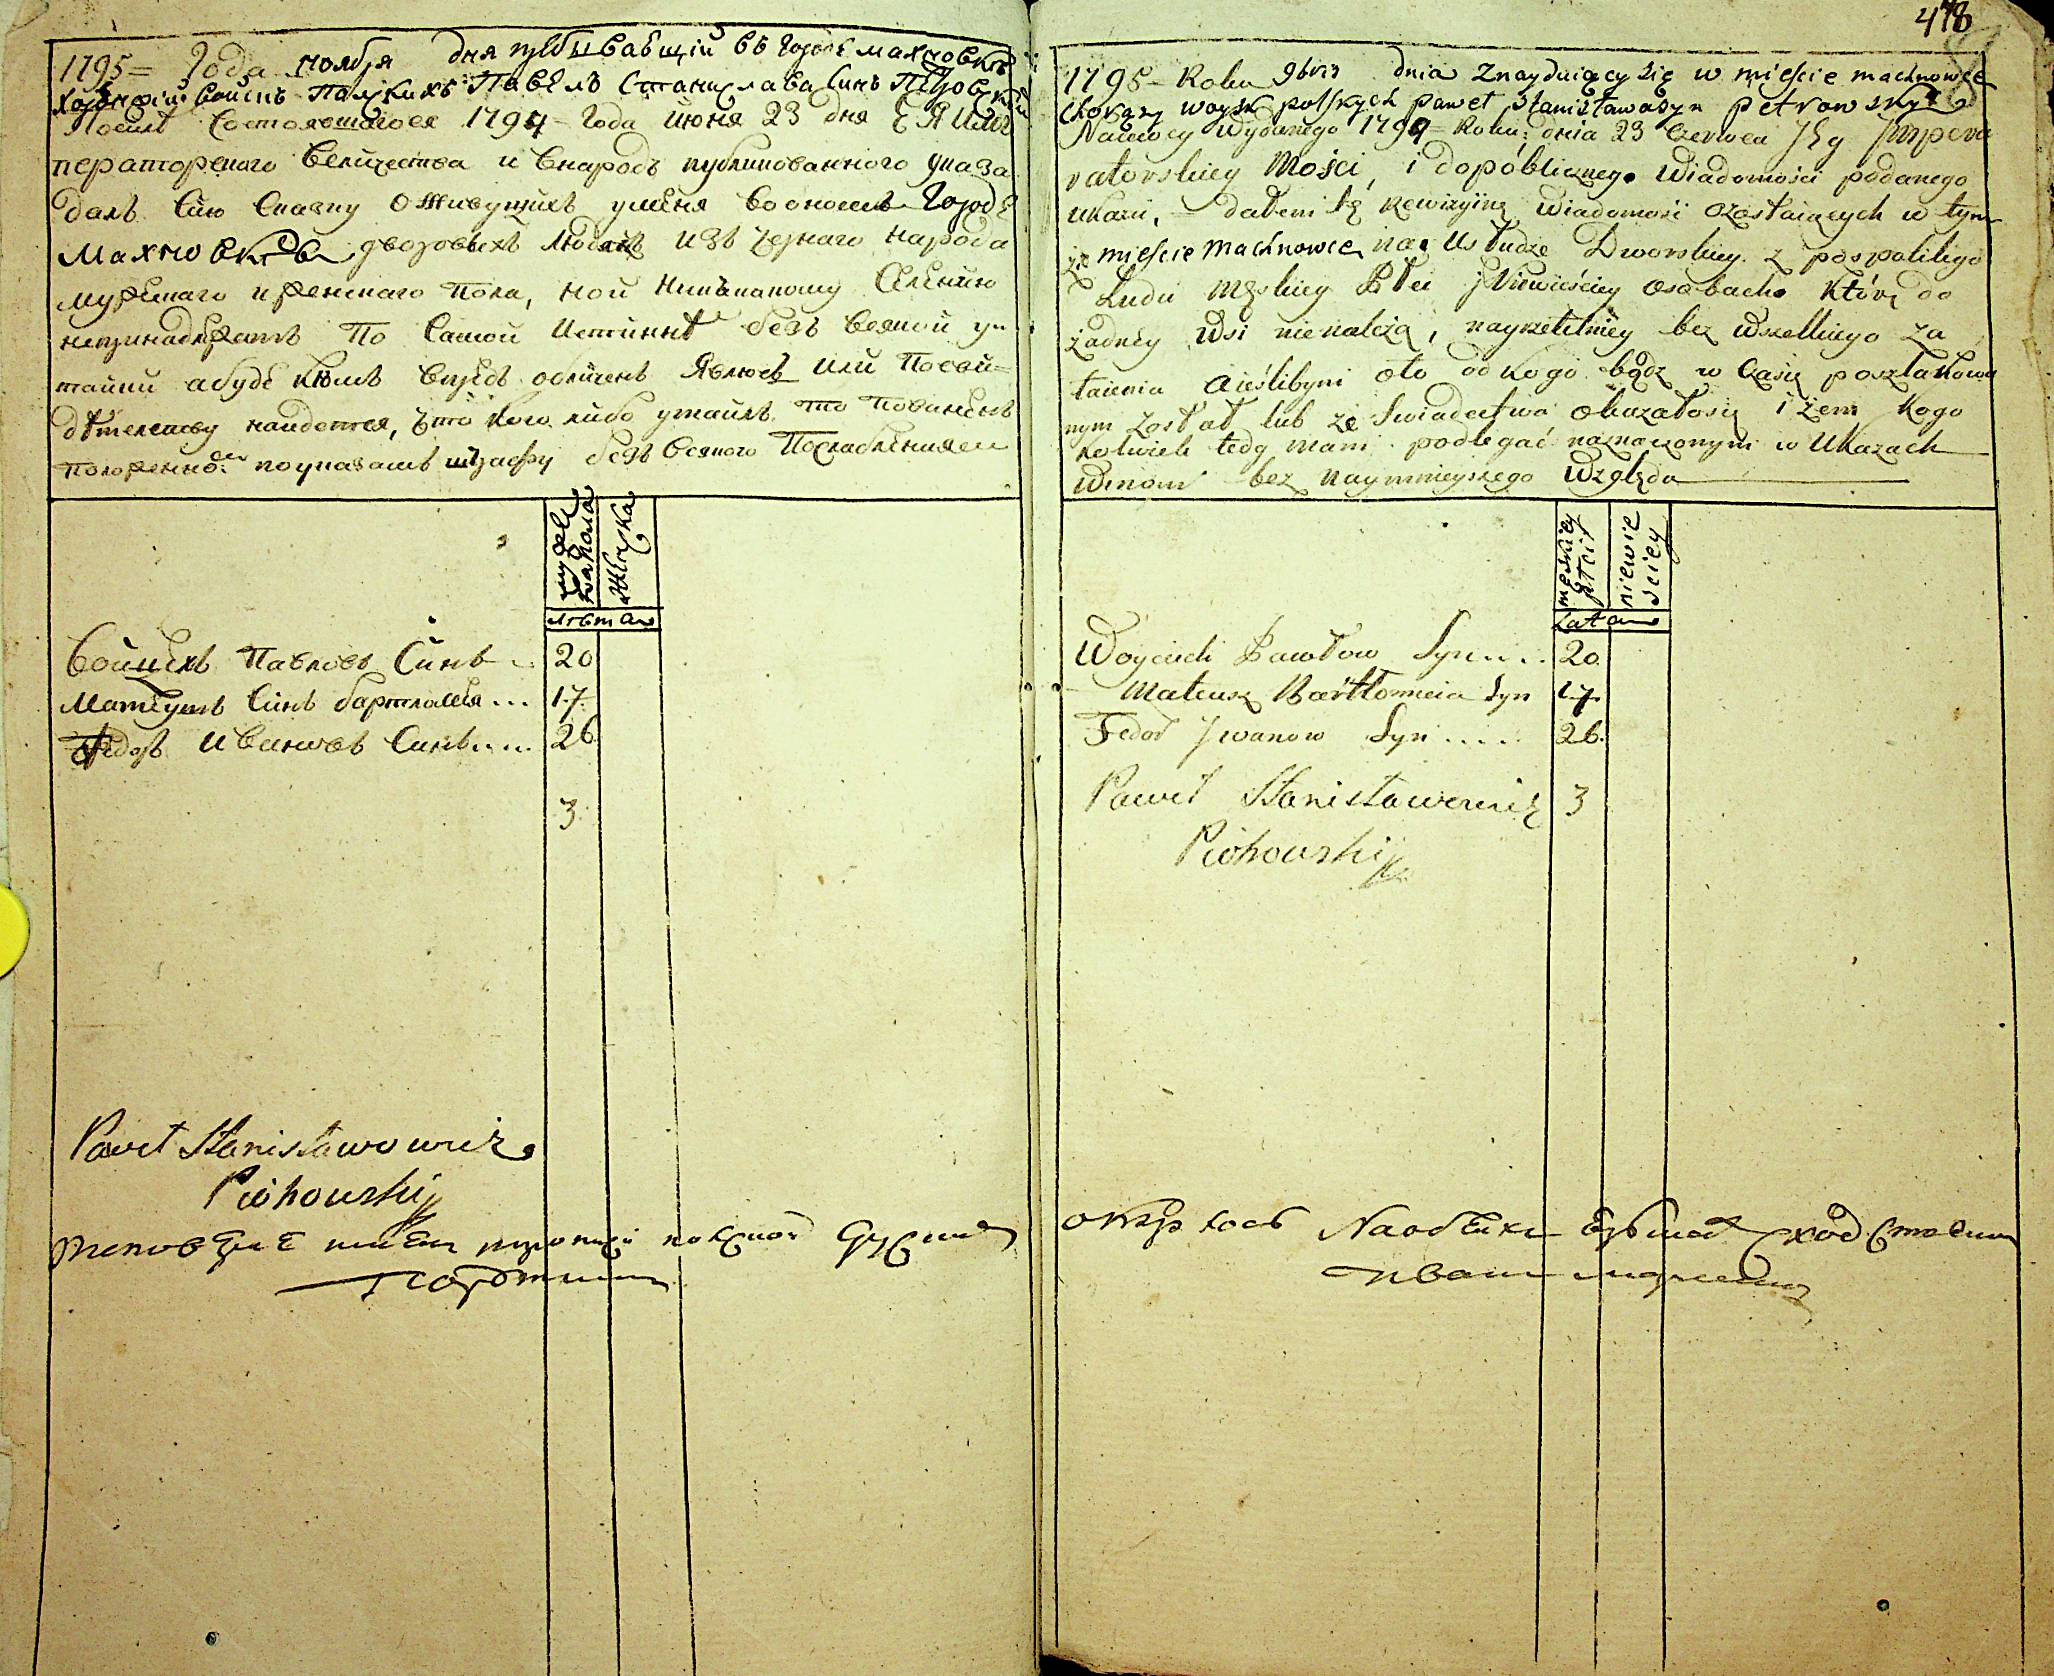 1795= Года ноября дня пребывающий въ городе махновке
хорунжий войскъ Польскихъ Павелъ Станислава Синъ
После состоявшагося 1794= Года июня 23 дня Ея Им
ператорскаго Величества и внародъ публикованного указа
далъ Сию Сказку о живущихъ уменя Городе
Махновке дворовыхъ людехъ изъ чернаго народа
мужескаго и женскаго пола, кои никъ какому Селению
непринадлежатъ по Самой Истинне безъ всякой у=
тайки абуде кемъ впредь обличенъ Явлюсь или посви=
детельству найдется, что кого либо утаилъ то повиненъ
положенному поуказамъ штрафу безъ всякого Послабления
мужеска пола
женска
летам
Войцехъ Павловъ Синъ .. 20
Матеушъ Синъ бартломея ... 17
Федоръ Ивановъ Синъ .... 26
3
Paweł Stanisławowicz
Piotrowski
478
1795= Roku 9bris dnia Znayduiący się w mieście machnowce
Chorąży woysk polskych paweł Stanisława syn petrowsky
Namocy wydanego 1794= Roku dnia 23 Czerwca Jey Impera
ratorskiey Mości, i dopóblicznego Wiadomości podanego
ukazu, = dałem tę Rewizyiną Wiadomość ozostaiących w tym
że mieście Machnowce na usłudze Dworskiey z pospolitego
Ludu Męskiey Płci i Niewieściey osobach Którę do
żadney Wsi nienależą, nayrzetelniey bez wszelkiego za
taienia aieślibym oto od kogo bądz w Czasie poszlakowa
nym został lub ze Swiadectwa okazałosię iżem Kogo
kolwiek tedy mam podlegać naznaczonym w Ukazach
Winom bez naymnieyszego Względu
męskiey płci
niewie sciey
Lat
Woyciech Pawłow Syn.... 20.
Mateusz Bartłomieia Syn 17.
Fedor Jwanow Syn ..... 26.
3
Paweł Stanisławowicz
Piotrowski